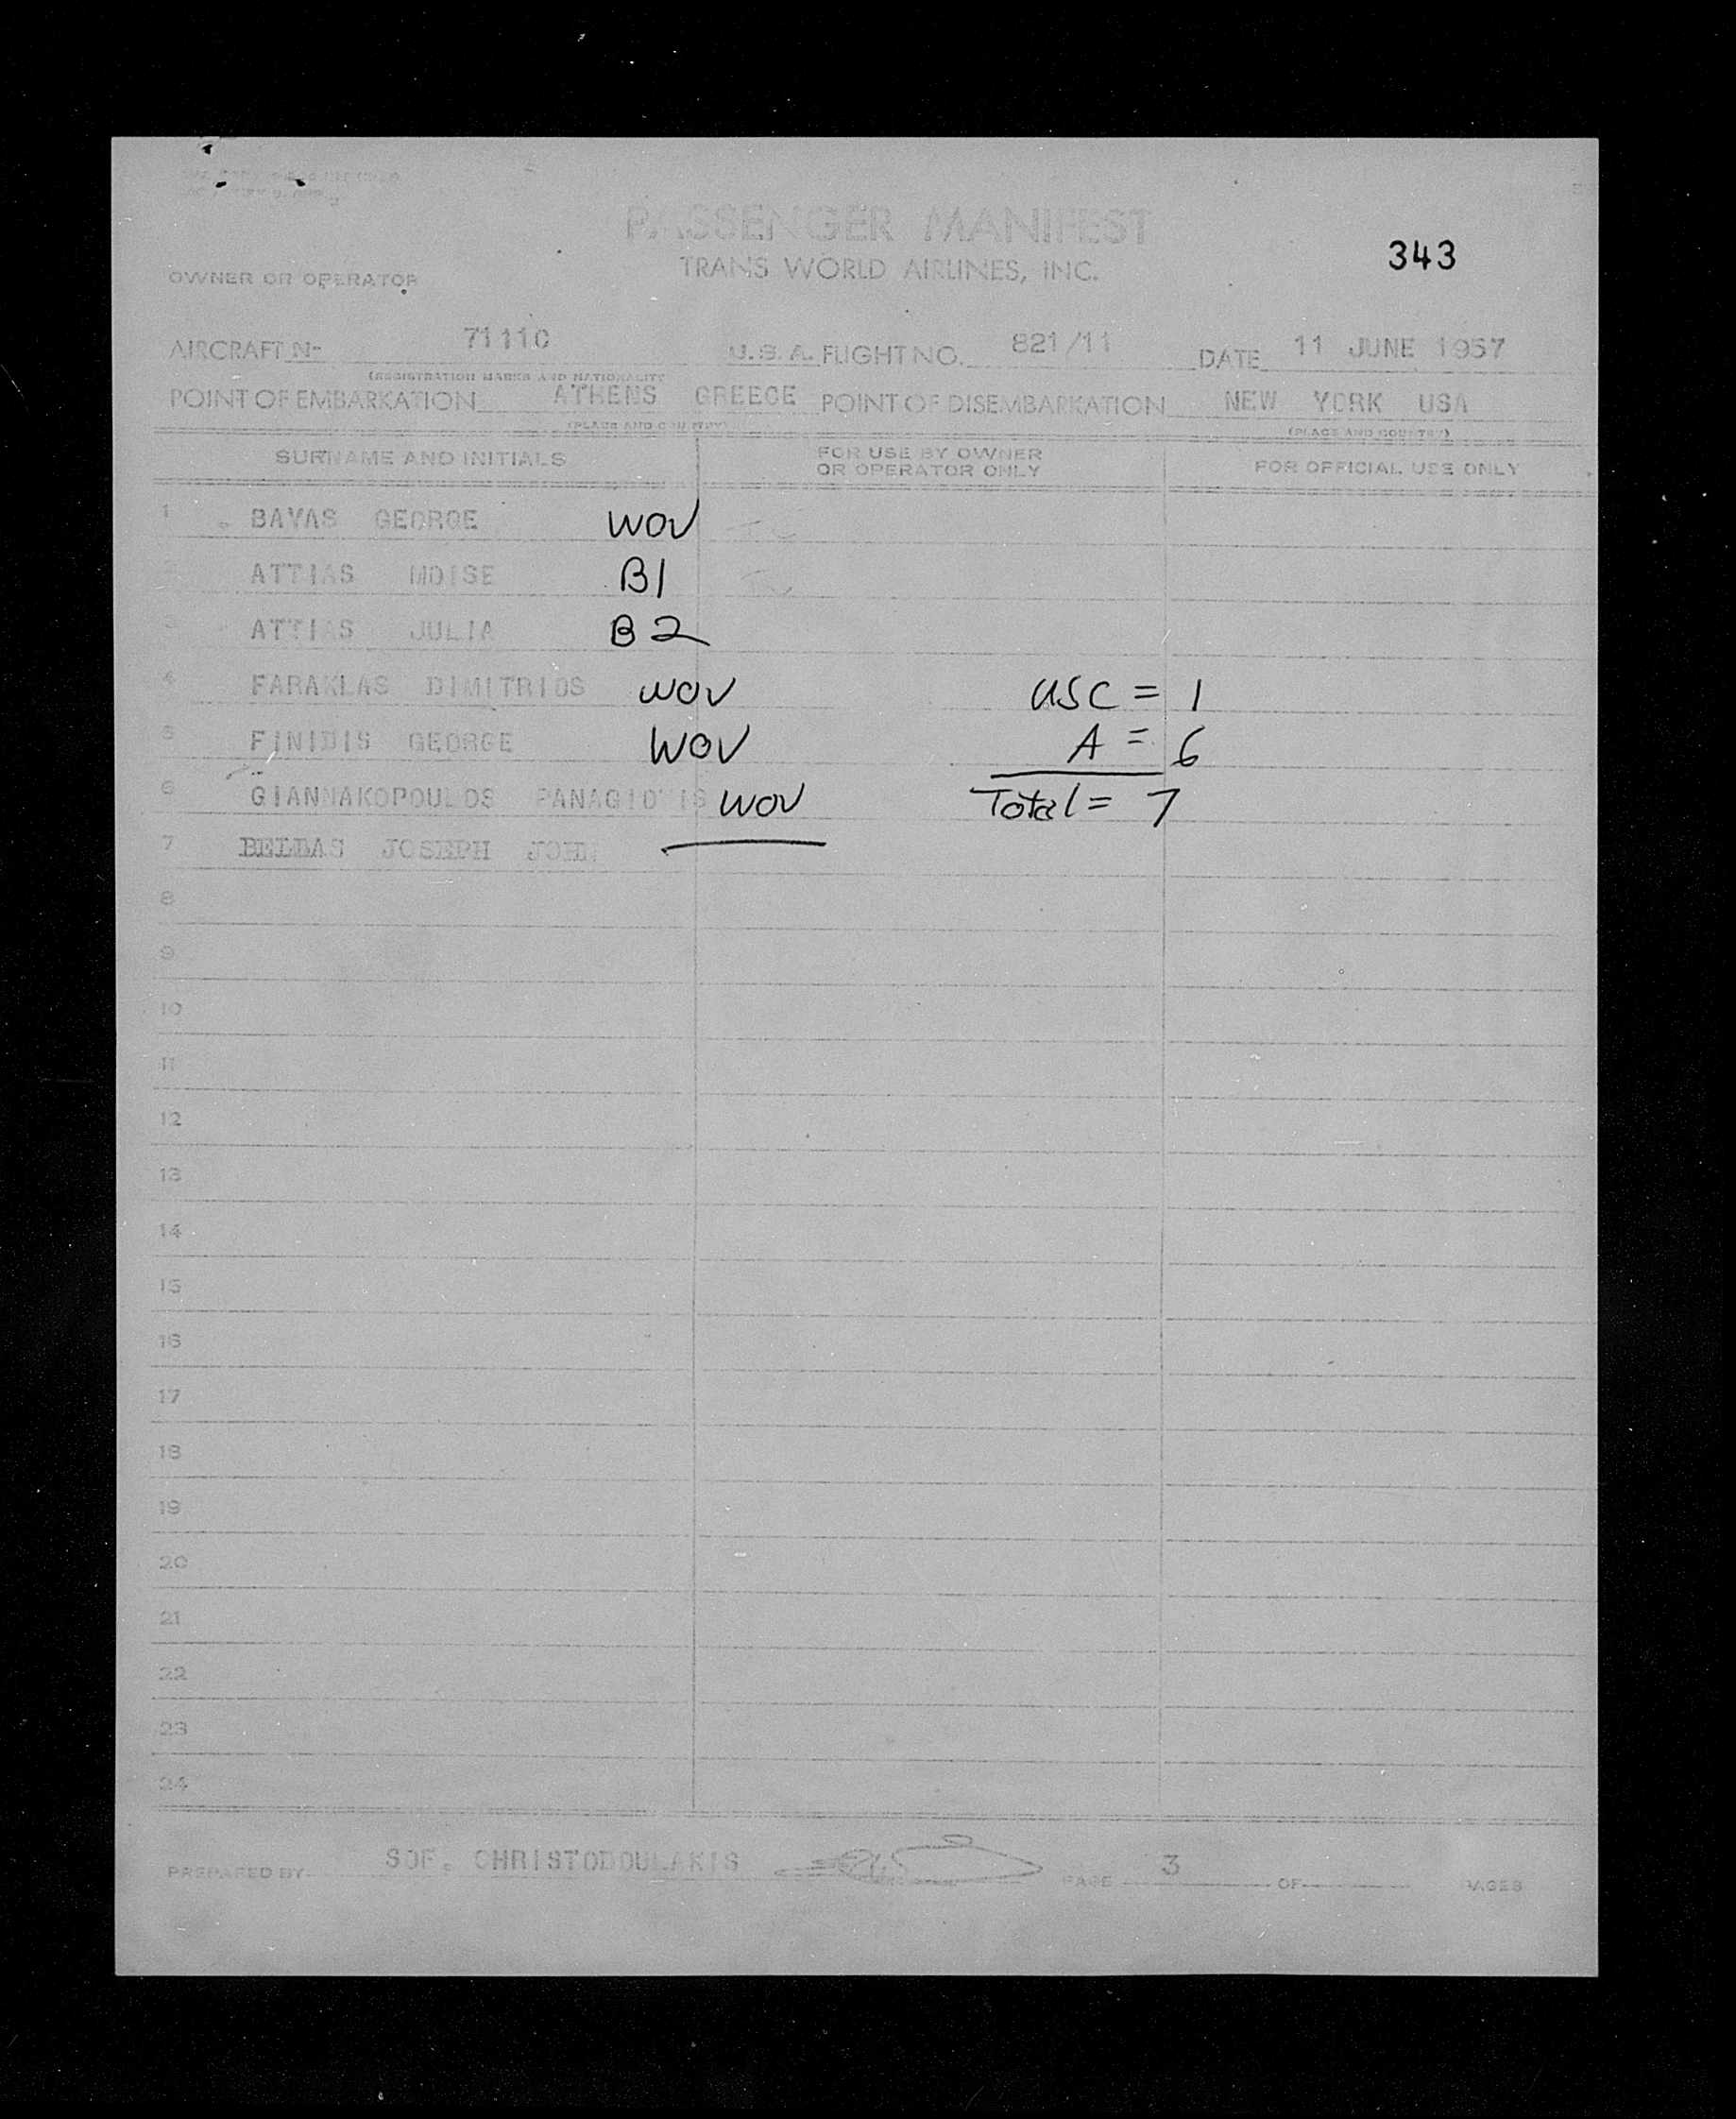 PASSENGER MANIFEST
TRANS WORLD AIRLINES, INC.
343
OWNER OR OPERATOR
AIRCRAFT N- 71110 U.S.A. FLIGHT NO. 821/11 DATE 11 JUNE 1957
(REGISTRATION MARKS AND NATIONALITY
POINT OF EMBARKATION ATHENS GREECE POINT OF DISEMBARKATION NEW YORK USA
(PLACE AND COUNTRY) (PLACE AND COUNTRY)
SURNAME AND INITIALS FOR USE BY OWNER OR OPERATOR ONLY FOR OFFICIAL USE ONLY
1 BAVAS GEORGE WOV
2 ATTIAS MOISE B1
3 ATTIAS JULIA B2
4 FARAKLAS DIMITRIOS WOV USC = 1
5 FINIDIS GEORGE WOV A = 6
6 GIANNAKOPOULOS PANAGIOTIS WOV Total = 7
7 JOSEPH JOHN
8
9
10
11
12
13
14
15
16
17
18
19
20
21
22
23
24
PREPARED BY SOF. CHRISTODOULAKIS PAGE 3 OF PAGES